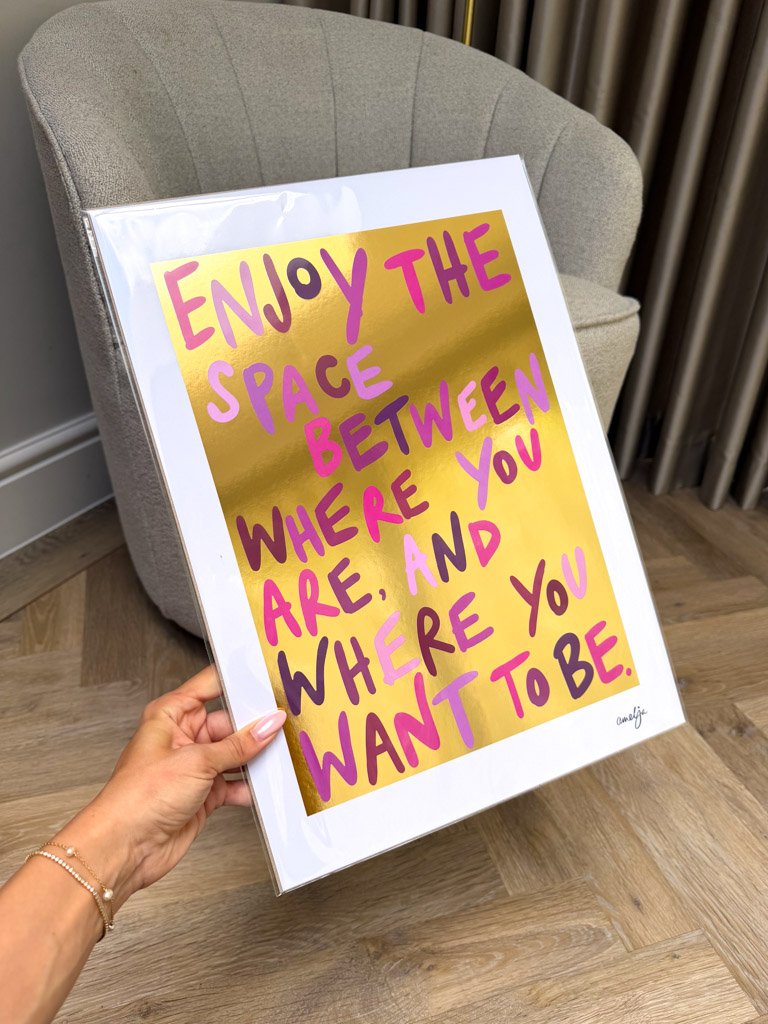 ENJOY THE
SPACE
BETWEEN
WHERE YOU
ARE, AND
WHERE YOU
WANT TO BE.
amelja